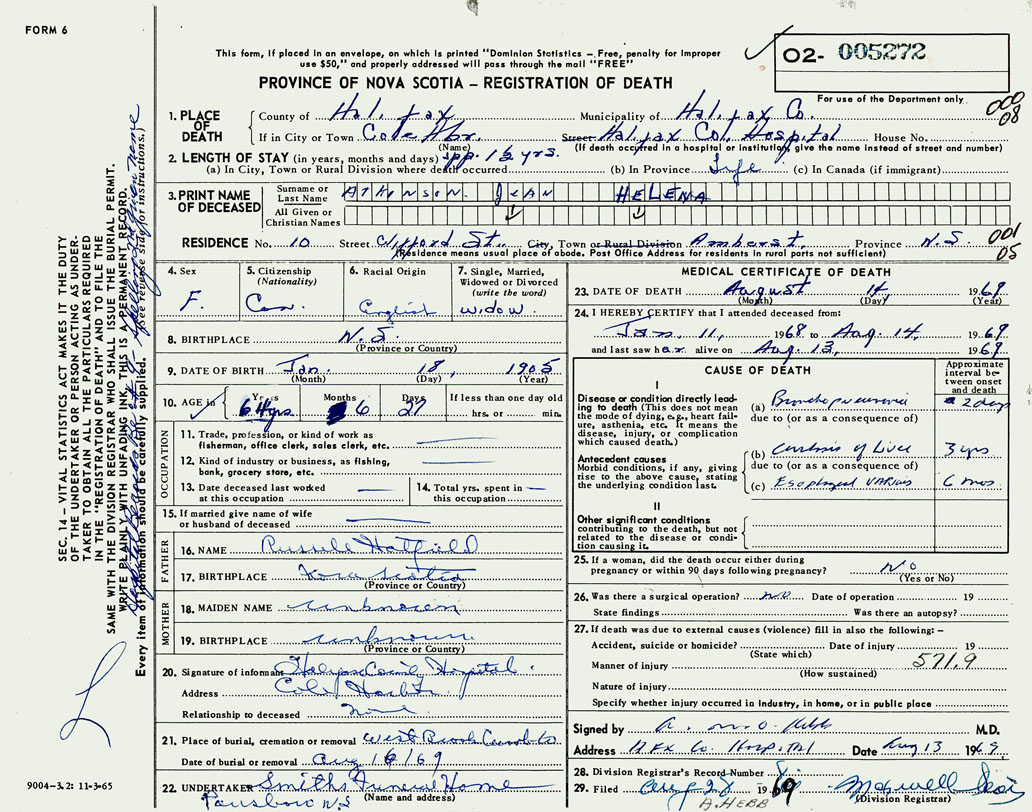 FORM 6
This form, if placed in an envelope, on which is printed "Dominion Statistics – Free, penalty for improper
use $50," and properly addressed will pass through the mail "FREE"
PROVINCE OF NOVA SCOTIA – REGISTRATION OF DEATH
02- 005272
For use of the Department only
000
08
1. PLACE OF DEATH
County of Halifax Municipality of Halifax Co.
If in City or Town Cole Hbr. Street Halifax Co. Hospital House No.
(Name) (If death occurred in a hospital or institution, give the name instead of street and number)
2. LENGTH OF STAY (in years, months and days) app. 1½ yrs.
(a) In City, Town or Rural Division where death occurred (b) In Province Life (c) In Canada (if immigrant)
3. PRINT NAME OF DECEASED
Surname or Last Name ATKINSON JEAN HELENA
All Given or Christian Names
RESIDENCE No. 10 Street Clifford St. City, Town or Rural Division Amherst Province N.S. 001
05
(Residence means usual place of abode. Post Office Address for residents in rural parts not sufficient)
4. Sex
F.
5. Citizenship
(Nationality)
Can.
6. Racial Origin
English
7. Single, Married,
Widowed or Divorced
(write the word)
widow.
8. BIRTHPLACE N.S.
(Province or Country)
9. DATE OF BIRTH Jan. 18, 1905
(Month) (Day) (Year)
10. AGE in Years Months Days If less than one day
64 yrs 6 27 hrs. or min.
11. Trade, profession, or kind of work as
fisherman, office clerk, sales clerk, etc.
OCCUPATION
12. Kind of industry or business, as fishing,
bank, grocery store, etc.
13. Date deceased last worked
at this occupation
14. Total yrs. spent in
this occupation
15. If married give name of wife
or husband of deceased
FATHER
16. NAME Russell Hatfield
17. BIRTHPLACE Nova Scotia
(Province or Country)
MOTHER
18. MAIDEN NAME unknown
19. BIRTHPLACE unknown
(Province or Country)
20. Signature of informant Halifax County Hospital.
Address Cole Harbour
Relationship to deceased none
21. Place of burial, cremation or removal West Brook Cumb Co
Date of burial or removal Aug 16/69
22. UNDERTAKER Smiths Funeral Home
Parrsboro N S (Name and address)
MEDICAL CERTIFICATE OF DEATH
23. DATE OF DEATH August 14 1969
(Month) (Day) (Year)
24. I HEREBY CERTIFY that I attended deceased from:
Jan. 11, 1968 to Aug. 14, 1969
and last saw her alive on Aug. 13, 1969
CAUSE OF DEATH
Approximate
interval be-
tween onset
and death
I
Disease or condition directly lead-
ing to death (This does not mean
the mode of dying, e.g., heart failure,
asthenia, etc. It means the
disease, injury, or complication
which caused death.)
(a) Bronchopneumonia 2 days
due to (or as a consequence of)
Antecedent causes
Morbid conditions, if any, giving
rise to the above cause, stating
the underlying condition last.
(b) Cirrhosis of Liver 3 yrs
due to (or as a consequence of)
(c) Esophageal Varices 6 mos
II
Other significant conditions
contributing to the death, but not
related to the disease or condi-
tion causing it.
25. If a woman, did the death occur either during
pregnancy or within 90 days following pregnancy? No
(Yes or No)
26. Was there a surgical operation? no Date of operation 19
State findings Was there an autopsy?
27. If death was due to external causes (violence) fill in also the following: –
Accident, suicide or homicide? Date of injury 19
(State which)
Manner of injury 571.9
(How sustained)
Nature of injury
Specify whether injury occurred in industry, in home, or in public place
Signed by M.D.
Address Hfx Co. Hospital Date Aug 13 1969
28. Division Registrar's Record Number
29. Filed Aug 28 1969 Maxwell
A. HEBB (Division Registrar)
SEC. 14 – VITAL STATISTICS ACT MAKES IT THE DUTY
OF THE UNDERTAKER OR PERSON ACTING AS UNDER-
TAKER TO OBTAIN ALL THE PARTICULARS REQUIRED
IN THE "REGISTRATION OF DEATH" AND TO FILE THE
SAME WITH THE DIVISION REGISTRAR WHO SHALL ISSUE THE BURIAL PERMIT.
WRITE PLAINLY WITH UNFADING INK, THIS IS A PERMANENT RECORD.
Every item of information should be carefully supplied. (See reverse side for instructions.)
9004-3.2: 11-3-65